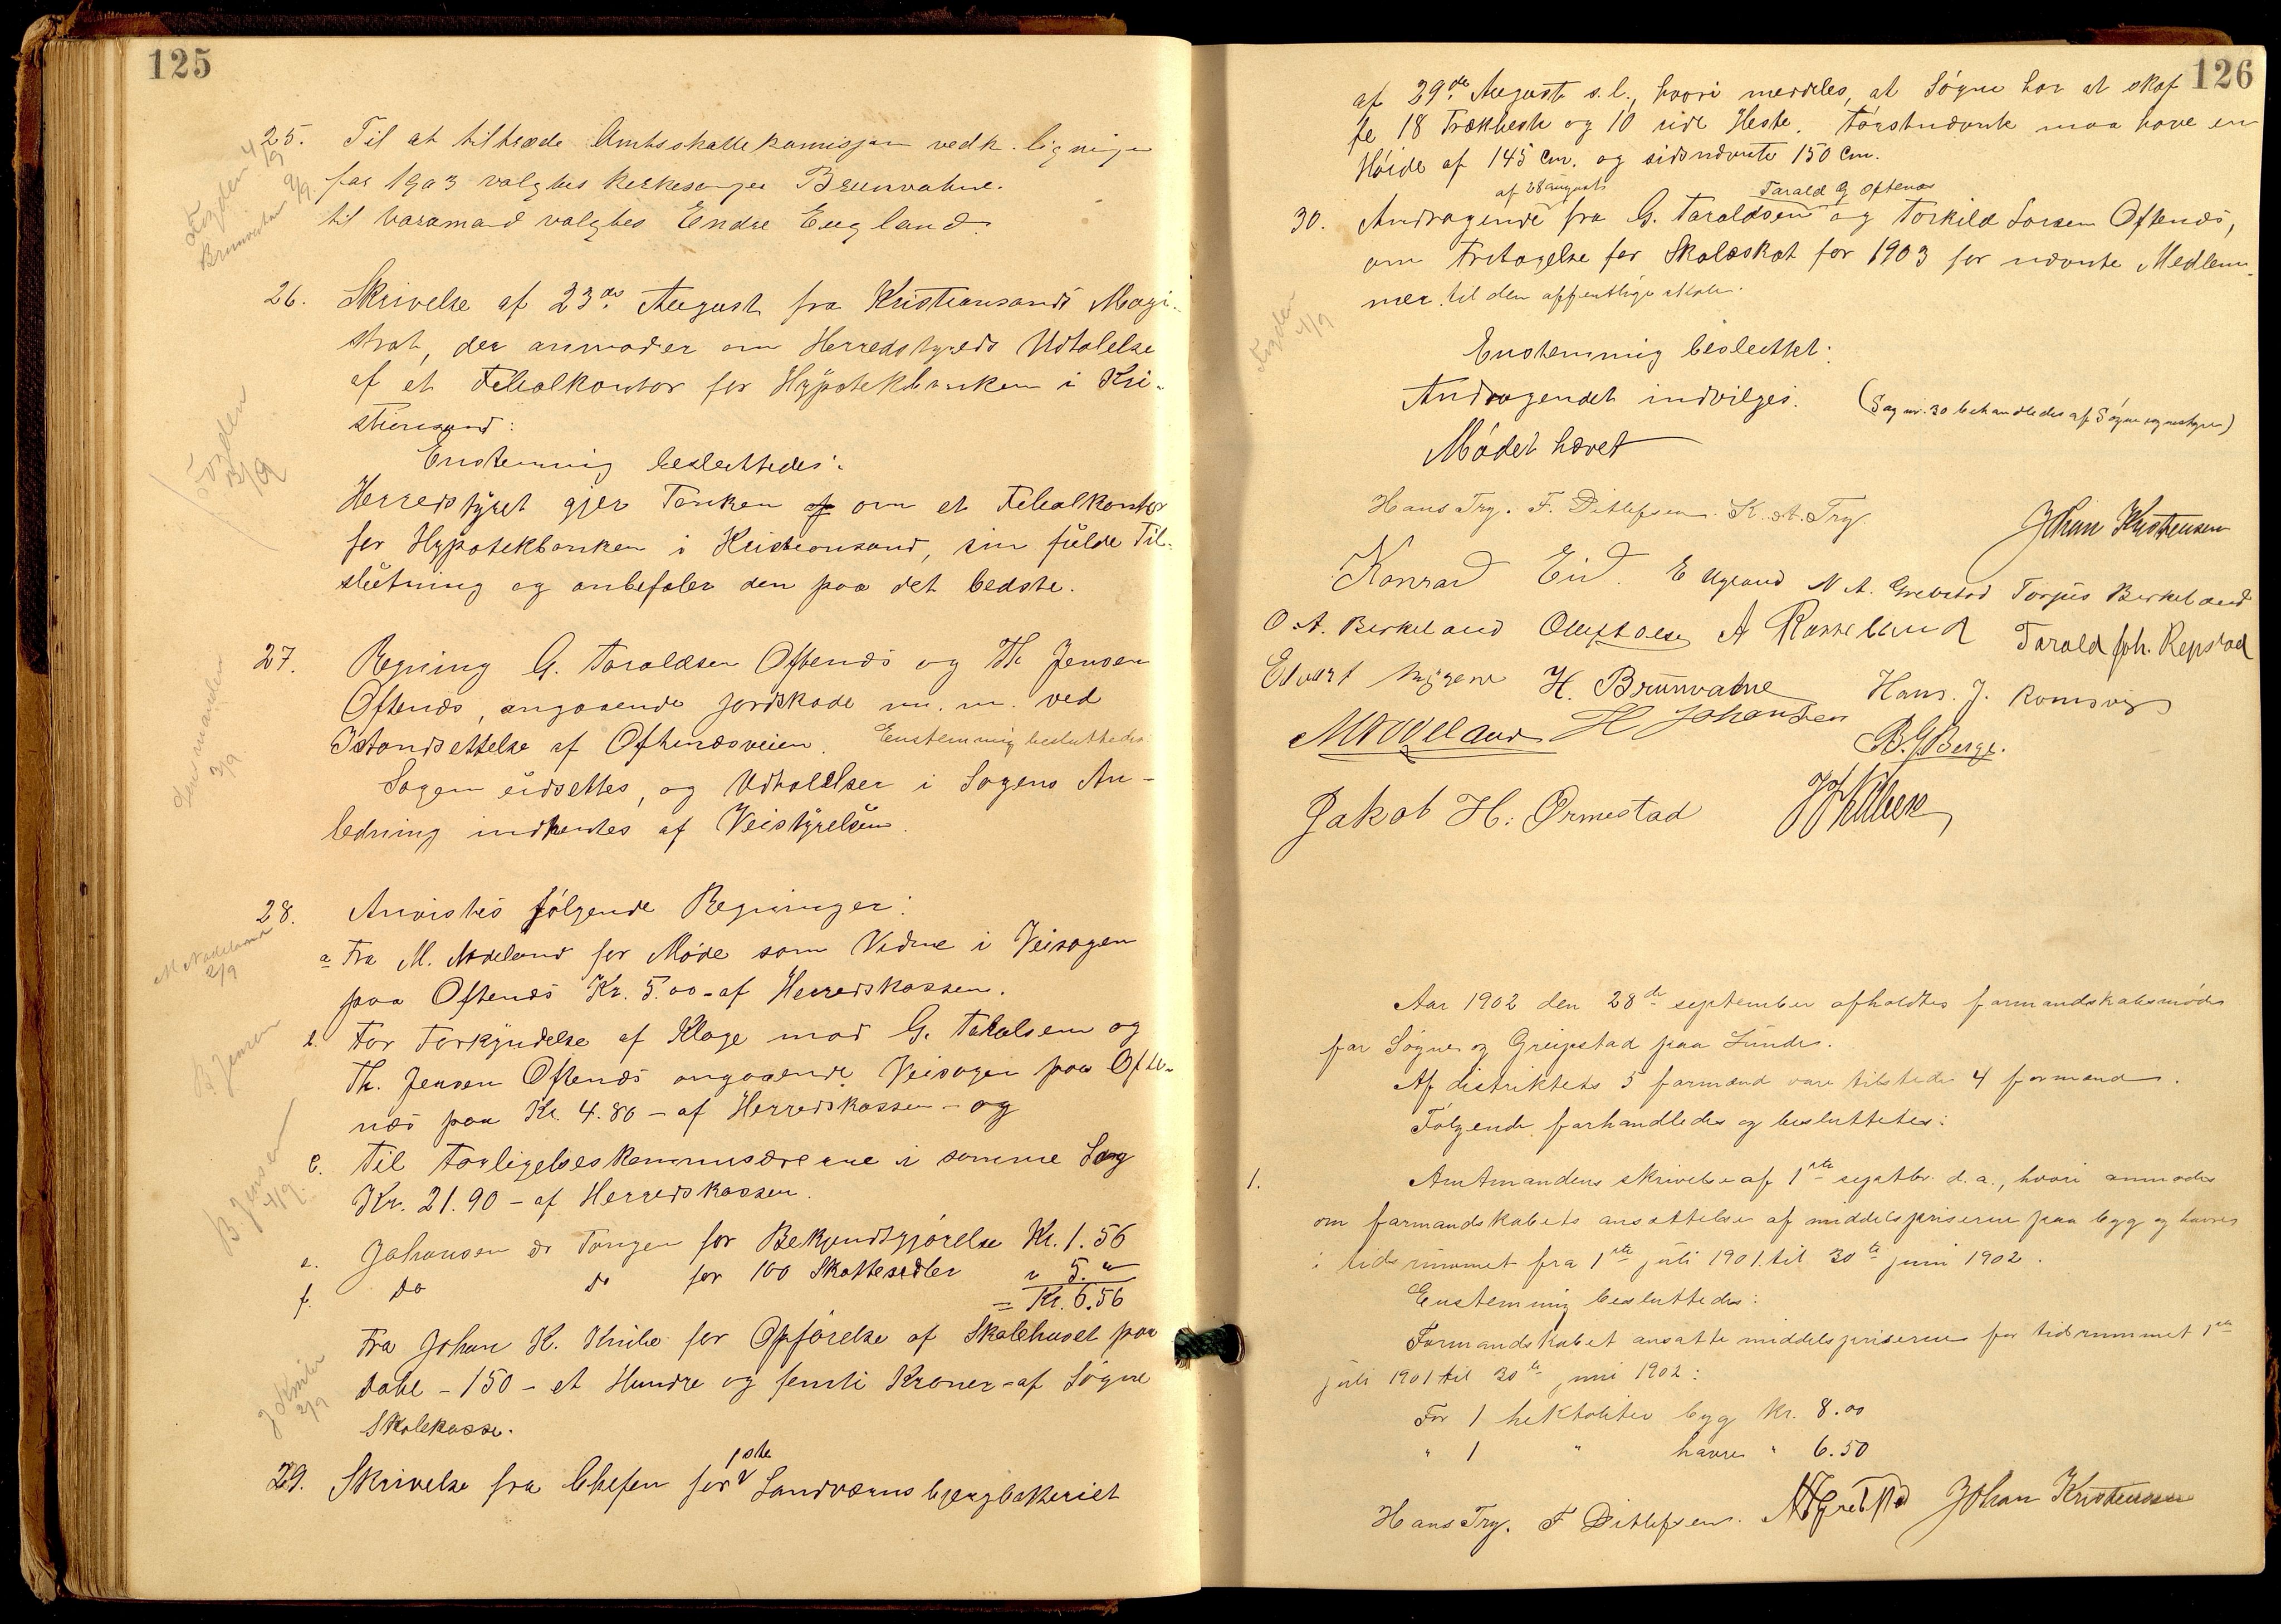 125
25. Til at tiltræde Amtsskattekomisjon vedk. ligningen
for 1903 valgtes kirkesanger Brunvatne.
til varamand valgtes Endre Eugland.
Fogden 4/9
Brunvatne 2/9.
26. Skrivelse af 23de August fra Kristiansands Magi-
strat, der anmoder om Herredstyreds Udtalelse
af et Filialkontor for Hypotekbanken i Kri-
stiansand:
Enstemmig besluttedes:
Herredstyret gjer Tanken om et Filialkontor
for Hypotekbanken i Kristiansand, sin fulde Til-
slutning og anbefaler den paa det bedste.
Fogden
27. Regning G. Taraldsen Oftenæs og Th Jensen
Oftenæs, angaaende jordskade m. m. ved
Istandsettelse af Oftenæsveien. Enstemmig besluttedes
Sagen udsettes, og Udtalelser i Sagens An-
ledning indhentes af Veistyrelsen.
Lensmanden
2/9
28. Anvistes følgende Regninger:
a Fra M. Nodeland for Møde som Vidne i Veisagen
paa Oftenæs Kr. 5.00 - af Herredskassen.
M Nodeland
2/9
b. For Forkyndelse af Klage mod G. Taralsen og
Th. Jensen Oftenæs angaaende Veisagen paa Ofte-
næs paa Kr. 4.80 - af Herredskassen - og
B. Jensen
c. Til Forligelseskommisærerne i samme Sag
Kr. 21.90 - af Herredskassen.
B. Jensen
4/9.
e. Johansen & Tangen for Bekjendtgjørelse Kr. 1.56
f. do do for 100 Skattesedler " 5. "
= Kr. 6.56
Fra Johan K. Knibe for Opførelse af Skolehuset paa
Dahl - 150 - et Hundre og femti Kroner - af Søgne
Skolekasse.
J Knibe
2/9
29. Skrivelse fra Chefen for 1ste Landværnsbjergbatteriet
126
af 29de August s. l., hvori meddeles, at Søgne har at skaf
fe 18 Trækheste og 10 ride Heste. Førstnævnte maa have en
Høide af 145 Cm. og sidsnævnte 150 Cm.
af 28 august Tarald G Oftenæs
30. Andragende fra G. Taraldsen og Torkild Larsen Oftenæs,
om Fritagelse for Skoleskat for 1903 for nævnte Medlem-
mer til den offentlige skole.
Fogden
4/9
Enstemmig besluttet:
Andragendet indvilges. (Sag nr. 30 behandledes af Søgne sognestyre)
Mødet hævet
Hans Try. F. Ditlefsen. K. A. Try. Johan Kristensen
Konrad Eid. E Ugland N A. Grebstad Torjus Birkeland
O. A. Birkeland A Rosseland Tarald Joh. Repstad
Edvart H. Brunvatne Hans. J. Romsvig
H Johansen
B. G Berge.
Jakob H. Ormestad
Aar 1902 den 28de september afholdtes formandskabsmøde
for Søgne og Greipstad paa Lunde.
Af distriktets 5 formænd vare tilstede 4 formænd.
Følgende forhandledes og besluttetes:
1. Amtmandens skrivelse af 1ste septbr. d. a., hvori anmodes
om formandskabets ansættelse af middelspriserne paa byg og havre
i tidsrummet fra 1ste juli 1901 til 30te juni 1902.
Enstemmig besluttedes:
Formandskabet ansatte middelspriserne for tidsrummet 1ste
juli 1901 til 30te juni 1902:
For 1 hektoliter byg kr. 8.00
" 1 " havre " 6.50
Hans Try. F Ditlefsen. N A Grebstad Johan Kristensen